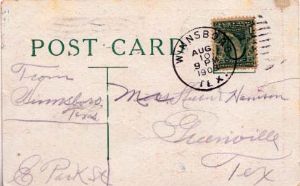 POST CARD
WINNSBORO
AUG
10
9 P
190
TEX.
From
Winnsboro,
Texas
E Park St
Mrs Stuart Harrison
Greenville
Tex